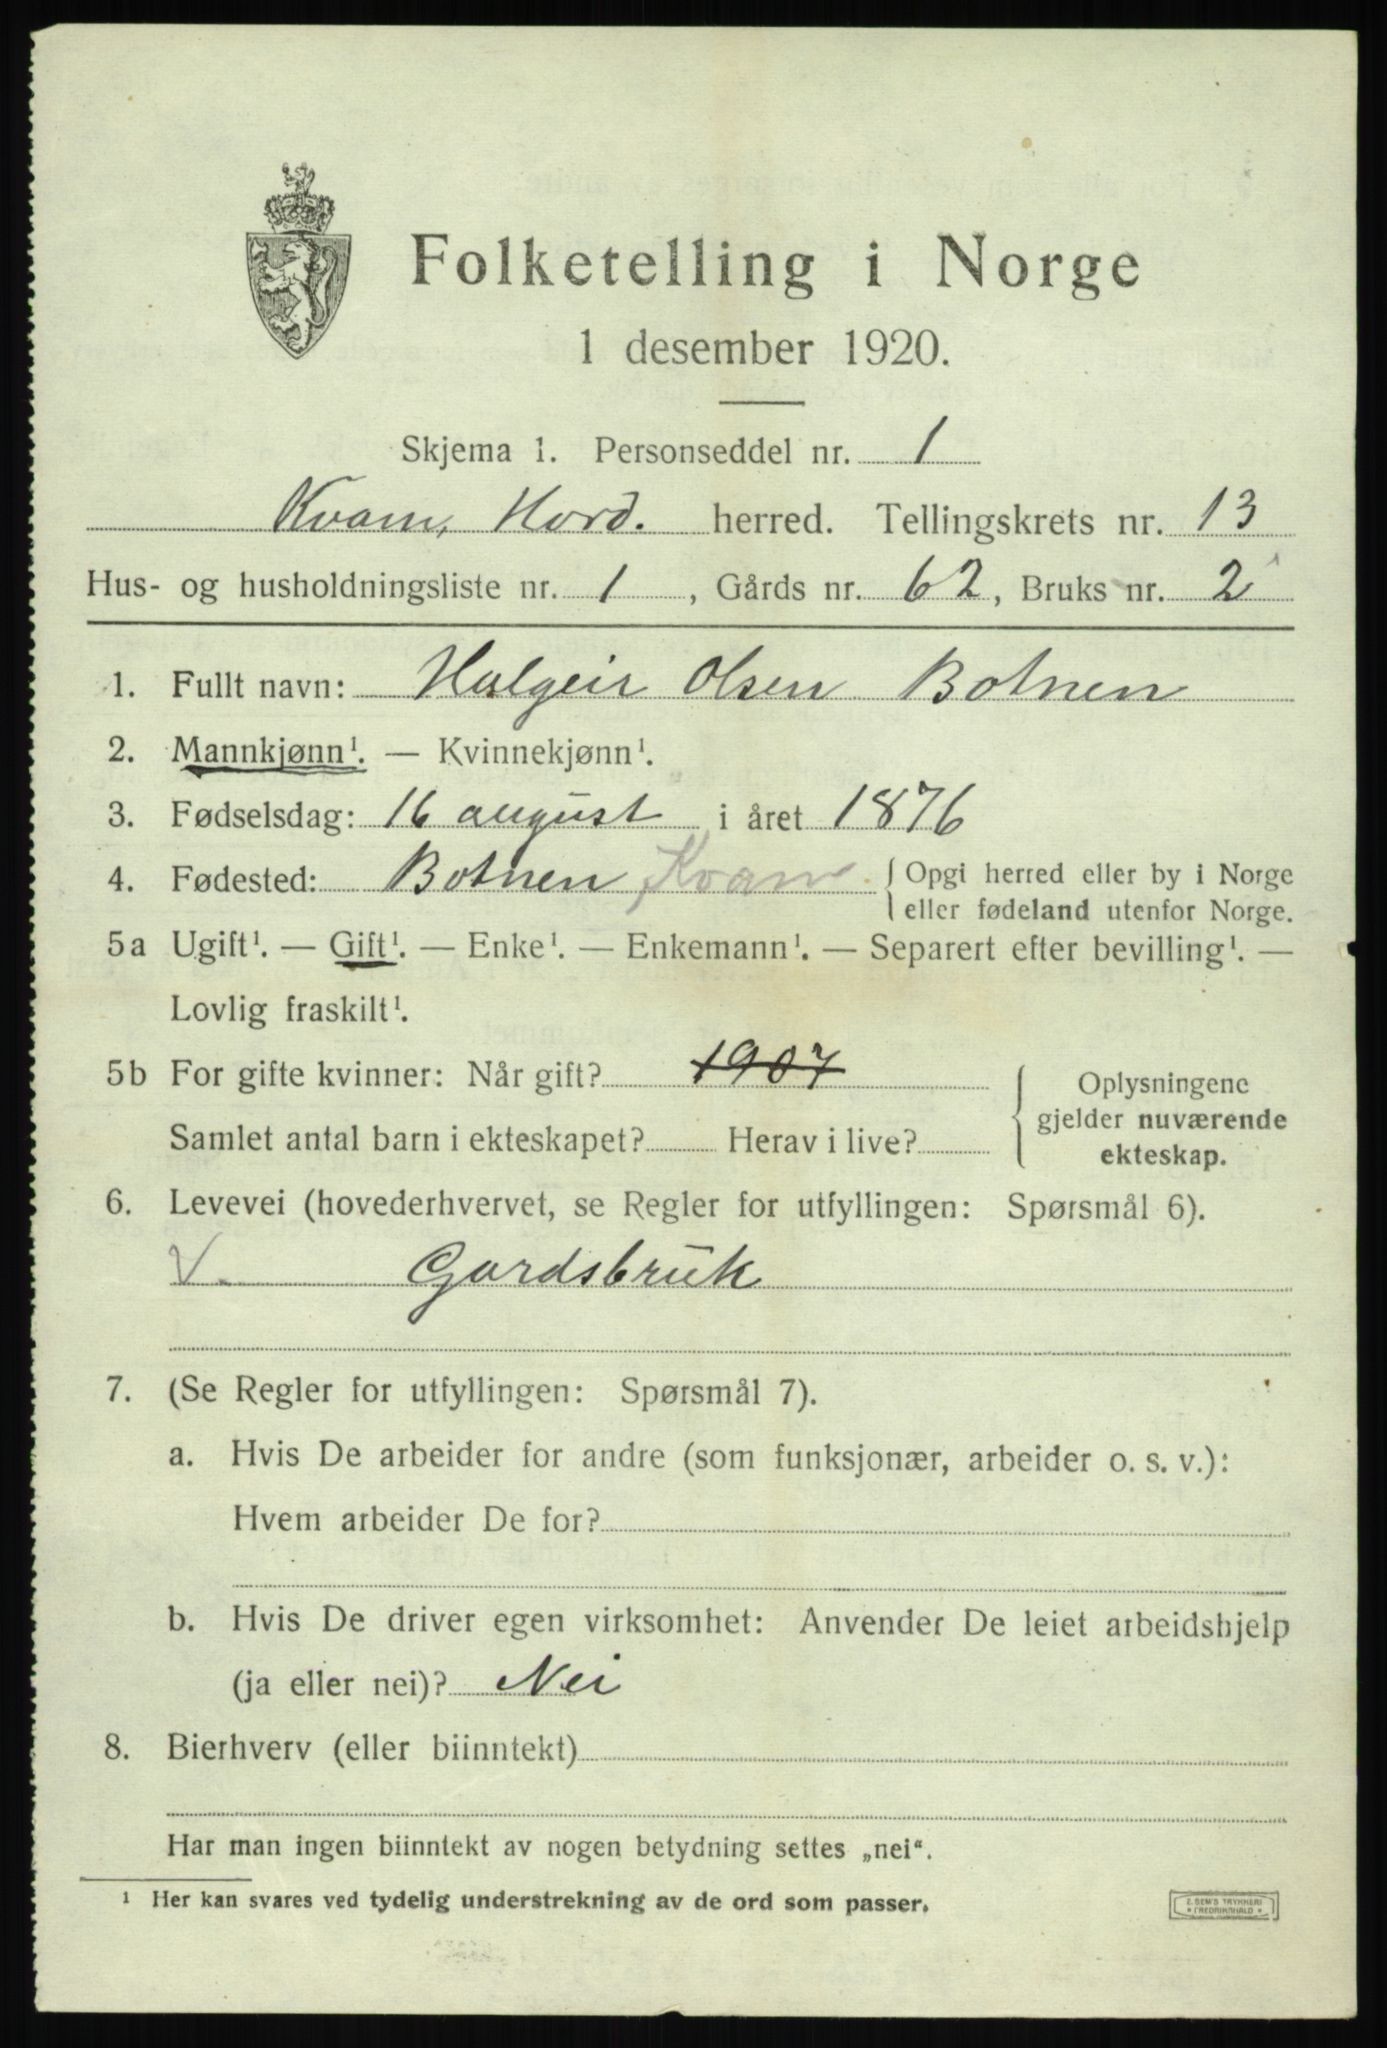 Folketelling i Norge
1 desember 1920.
Skjema 1. Personseddel nr. 1
Kvam, Hord. herred. Tellingskrets nr. 13
Hus- og husholdningsliste nr. 1, Gårds nr. 62, Bruks nr. 2
1. Fullt navn: Halgeir Olsen Botnen
2. Mannkjønn¹. — Kvinnekjønn¹.
3. Fødselsdag: 16 august i året 1876
4. Fødested: Botnen, Kvam { Opgi herred eller by i Norge
eller fødeland utenfor Norge.
5a Ugift¹. — Gift¹. — Enke¹. — Enkemann¹. — Separert efter bevilling¹. —
Lovlig fraskilt¹.
5b For gifte kvinner: Når gift? 1907
Samlet antal barn i ekteskapet? Herav i live?
Oplysningene
gjelder nuværende
ekteskap.
6. Levevei (hovederhvervet, se Regler for utfyllingen: Spørsmål 6).
V. Gardsbruk
7. (Se Regler for utfyllingen: Spørsmål 7).
a. Hvis De arbeider for andre (som funksjonær, arbeider o. s. v.):
Hvem arbeider De for?
b. Hvis De driver egen virksomhet: Anvender De leiet arbeidshjelp
(ja eller nei)? Nei
8. Bierhverv (eller biinntekt)
Har man ingen biinntekt av nogen betydning settes „nei“.
¹ Her kan svares ved tydelig understrekning av de ord som passer.
E. SEM'S TRYKKERI
* FREDRIKSHALD *